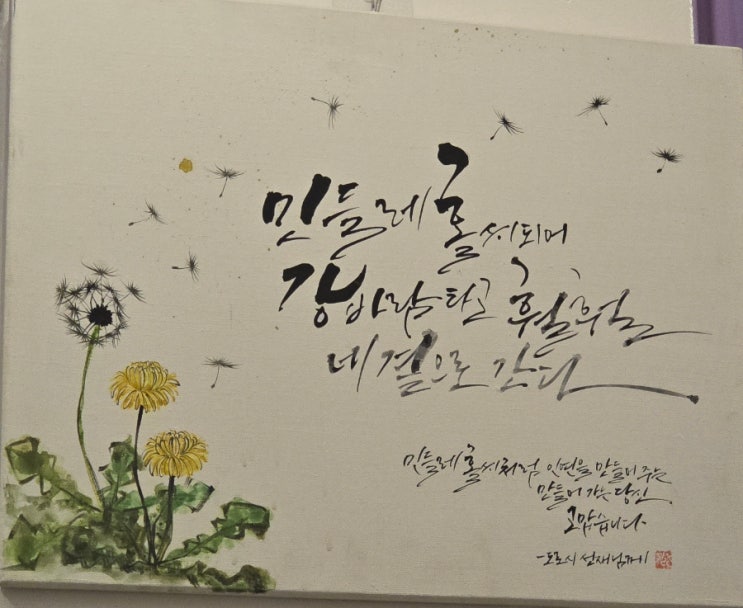 민들레 홀씨되어
강바람타고 훨훨
네 곁으로 간다
민들레 홀씨처럼 인연을 만들어 주는
만들어 가는 당신
고맙습니다
-도로시 선재님께